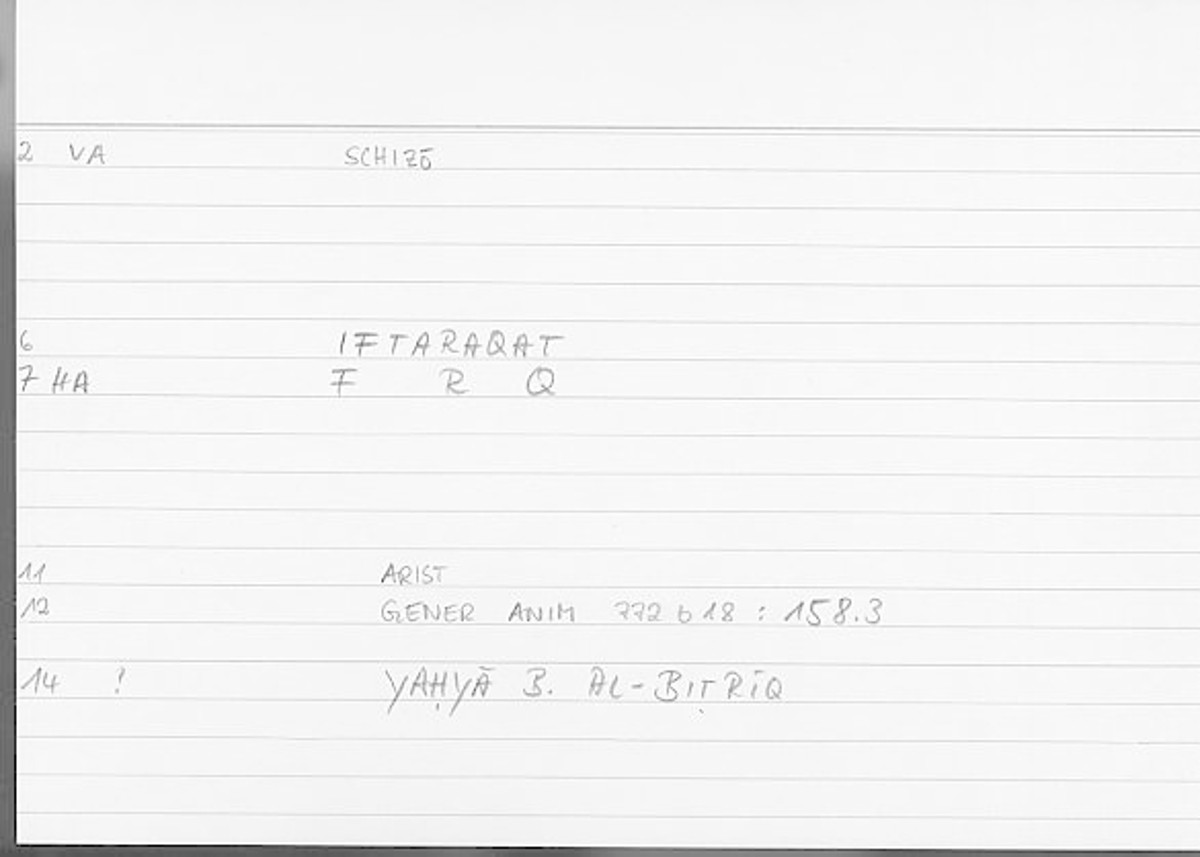 2 VA SCHIZŌ
6 IFTARAQAT
7 HA F R Q
11 ARIST
12 GENER ANIM 772 b 18 : 158.3
14 ! YAḤYĀ B. AL-BIṬRĪQ